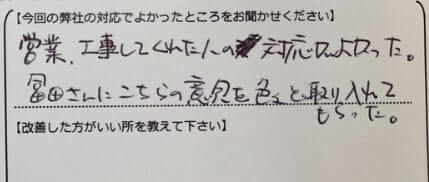 【今回の弊社の対応でよかったところをお聞かせください】
営業、工事してくれた人の対応はよかった。
冨田さんにこちらの意見を色々と取り入れて
もらった。
【改善した方がいい所を教えて下さい】